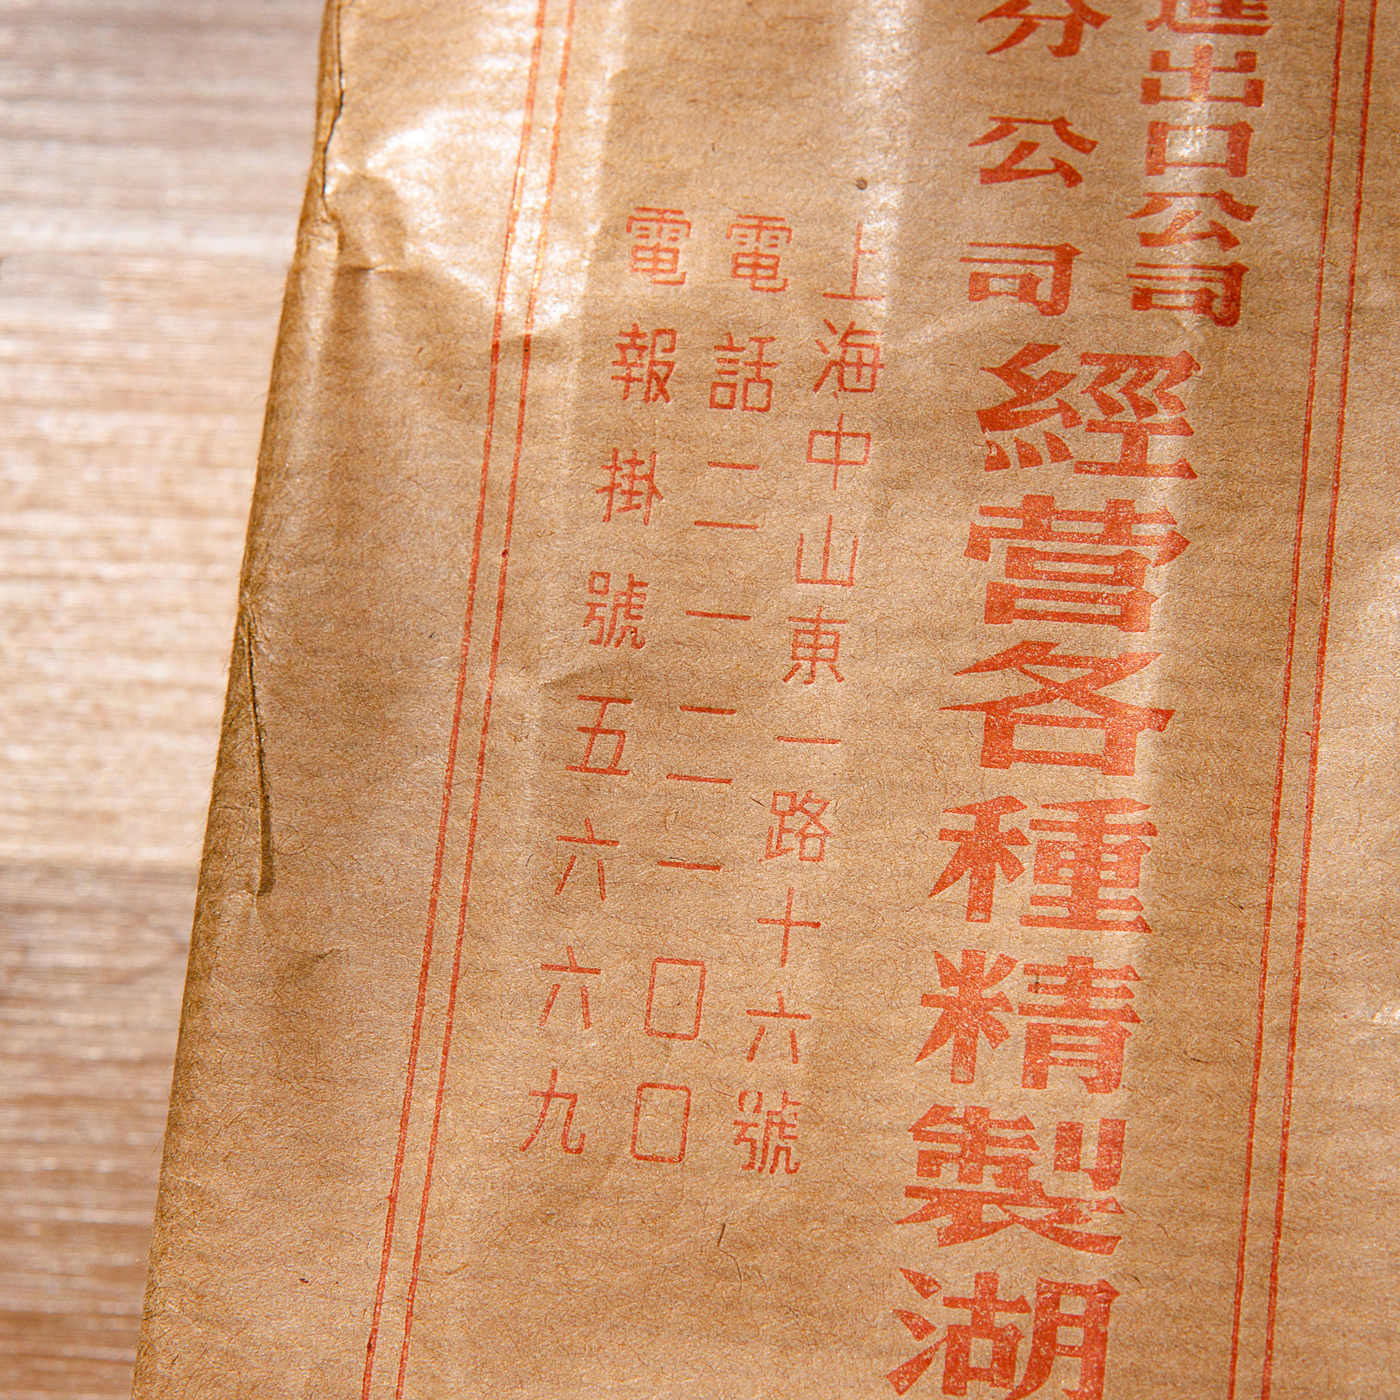 進出口公司
分公司
經營各種精製湖
上海中山東一路十六號
電話二一二一〇〇
電報掛號五六六九